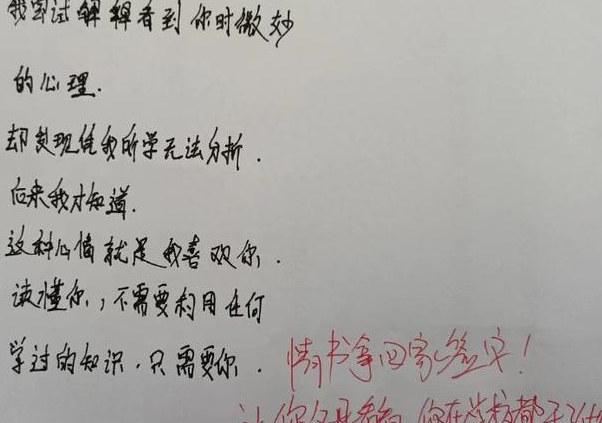 我尝试解释看到你时微妙
的心理.
却发现凭我所学无法分析.
后来我才知道.
这种心情就是我喜欢你.
读懂你,不需要利用任何
学过的知识.只需要你.
情书拿回家签字!
让你父母看看 你在学校都干了什么